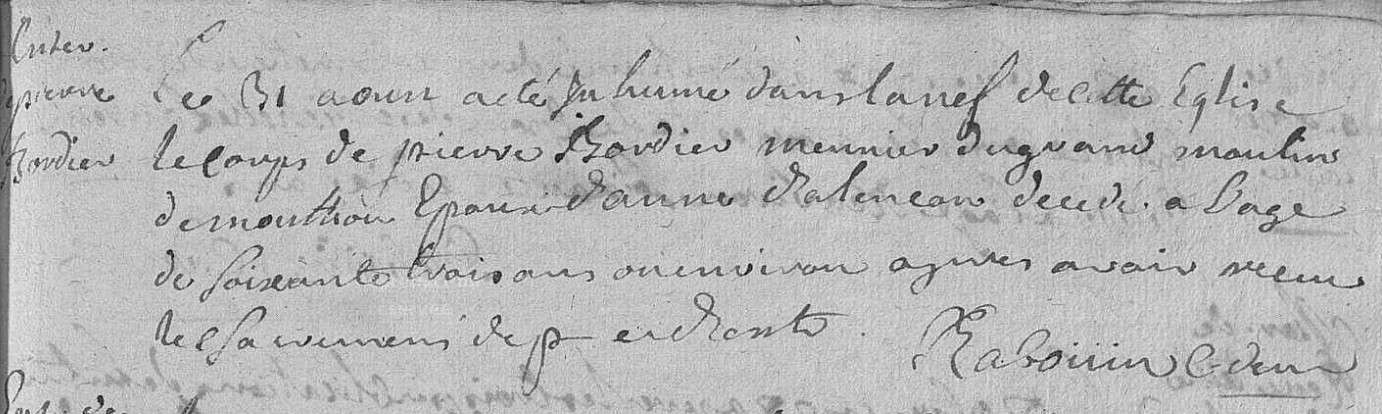 Enter.
de pierre
Bordier
Le 31 aoust a eté Inhumé dans la nef de cette Eglise
le corps de pierre Bordier meunier du grand moulin
de Epoux d'anne d'alencon decedé a l'age
de soixante trois ans ou environ apres avoir receu
les sacremens de p et d'ext
Rabouin C. de